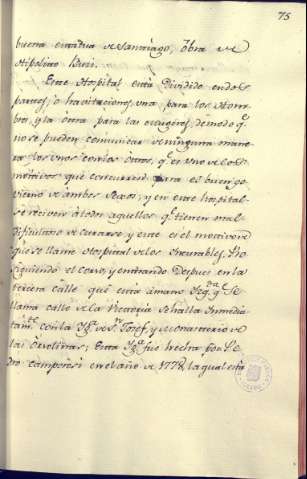 75
buena estatua de Santiago, obra de
Hipolito Buzi.
Este Hospital está Dividido en dos
partes, ò havitaciones, una para los Hom-
bres, y la otra para las mugeres, de modo qe
no se pueden comunicar de ninguna mane-
ra los unos con los otros, qe es uno de los
motivos que para es buen go-
vierno de ambos sexos; y en este hospital
se reciven à todos aquellos qe tienen mal
dificultoso de curarse y este es el motivo xe
que se llama Hospital de los Incurables. Pro-
siguiendo el Corso, y entrando Despues en la
tercera calle que está à mano Izqda qe se
llama calle de la se halla inmedia-
tamte con la Iga de Sn Josef, y Monasterio de
las Carolinas; Esta Iga fue hecha por Pe-
dro Camporesi en el año de 1778, la qual está